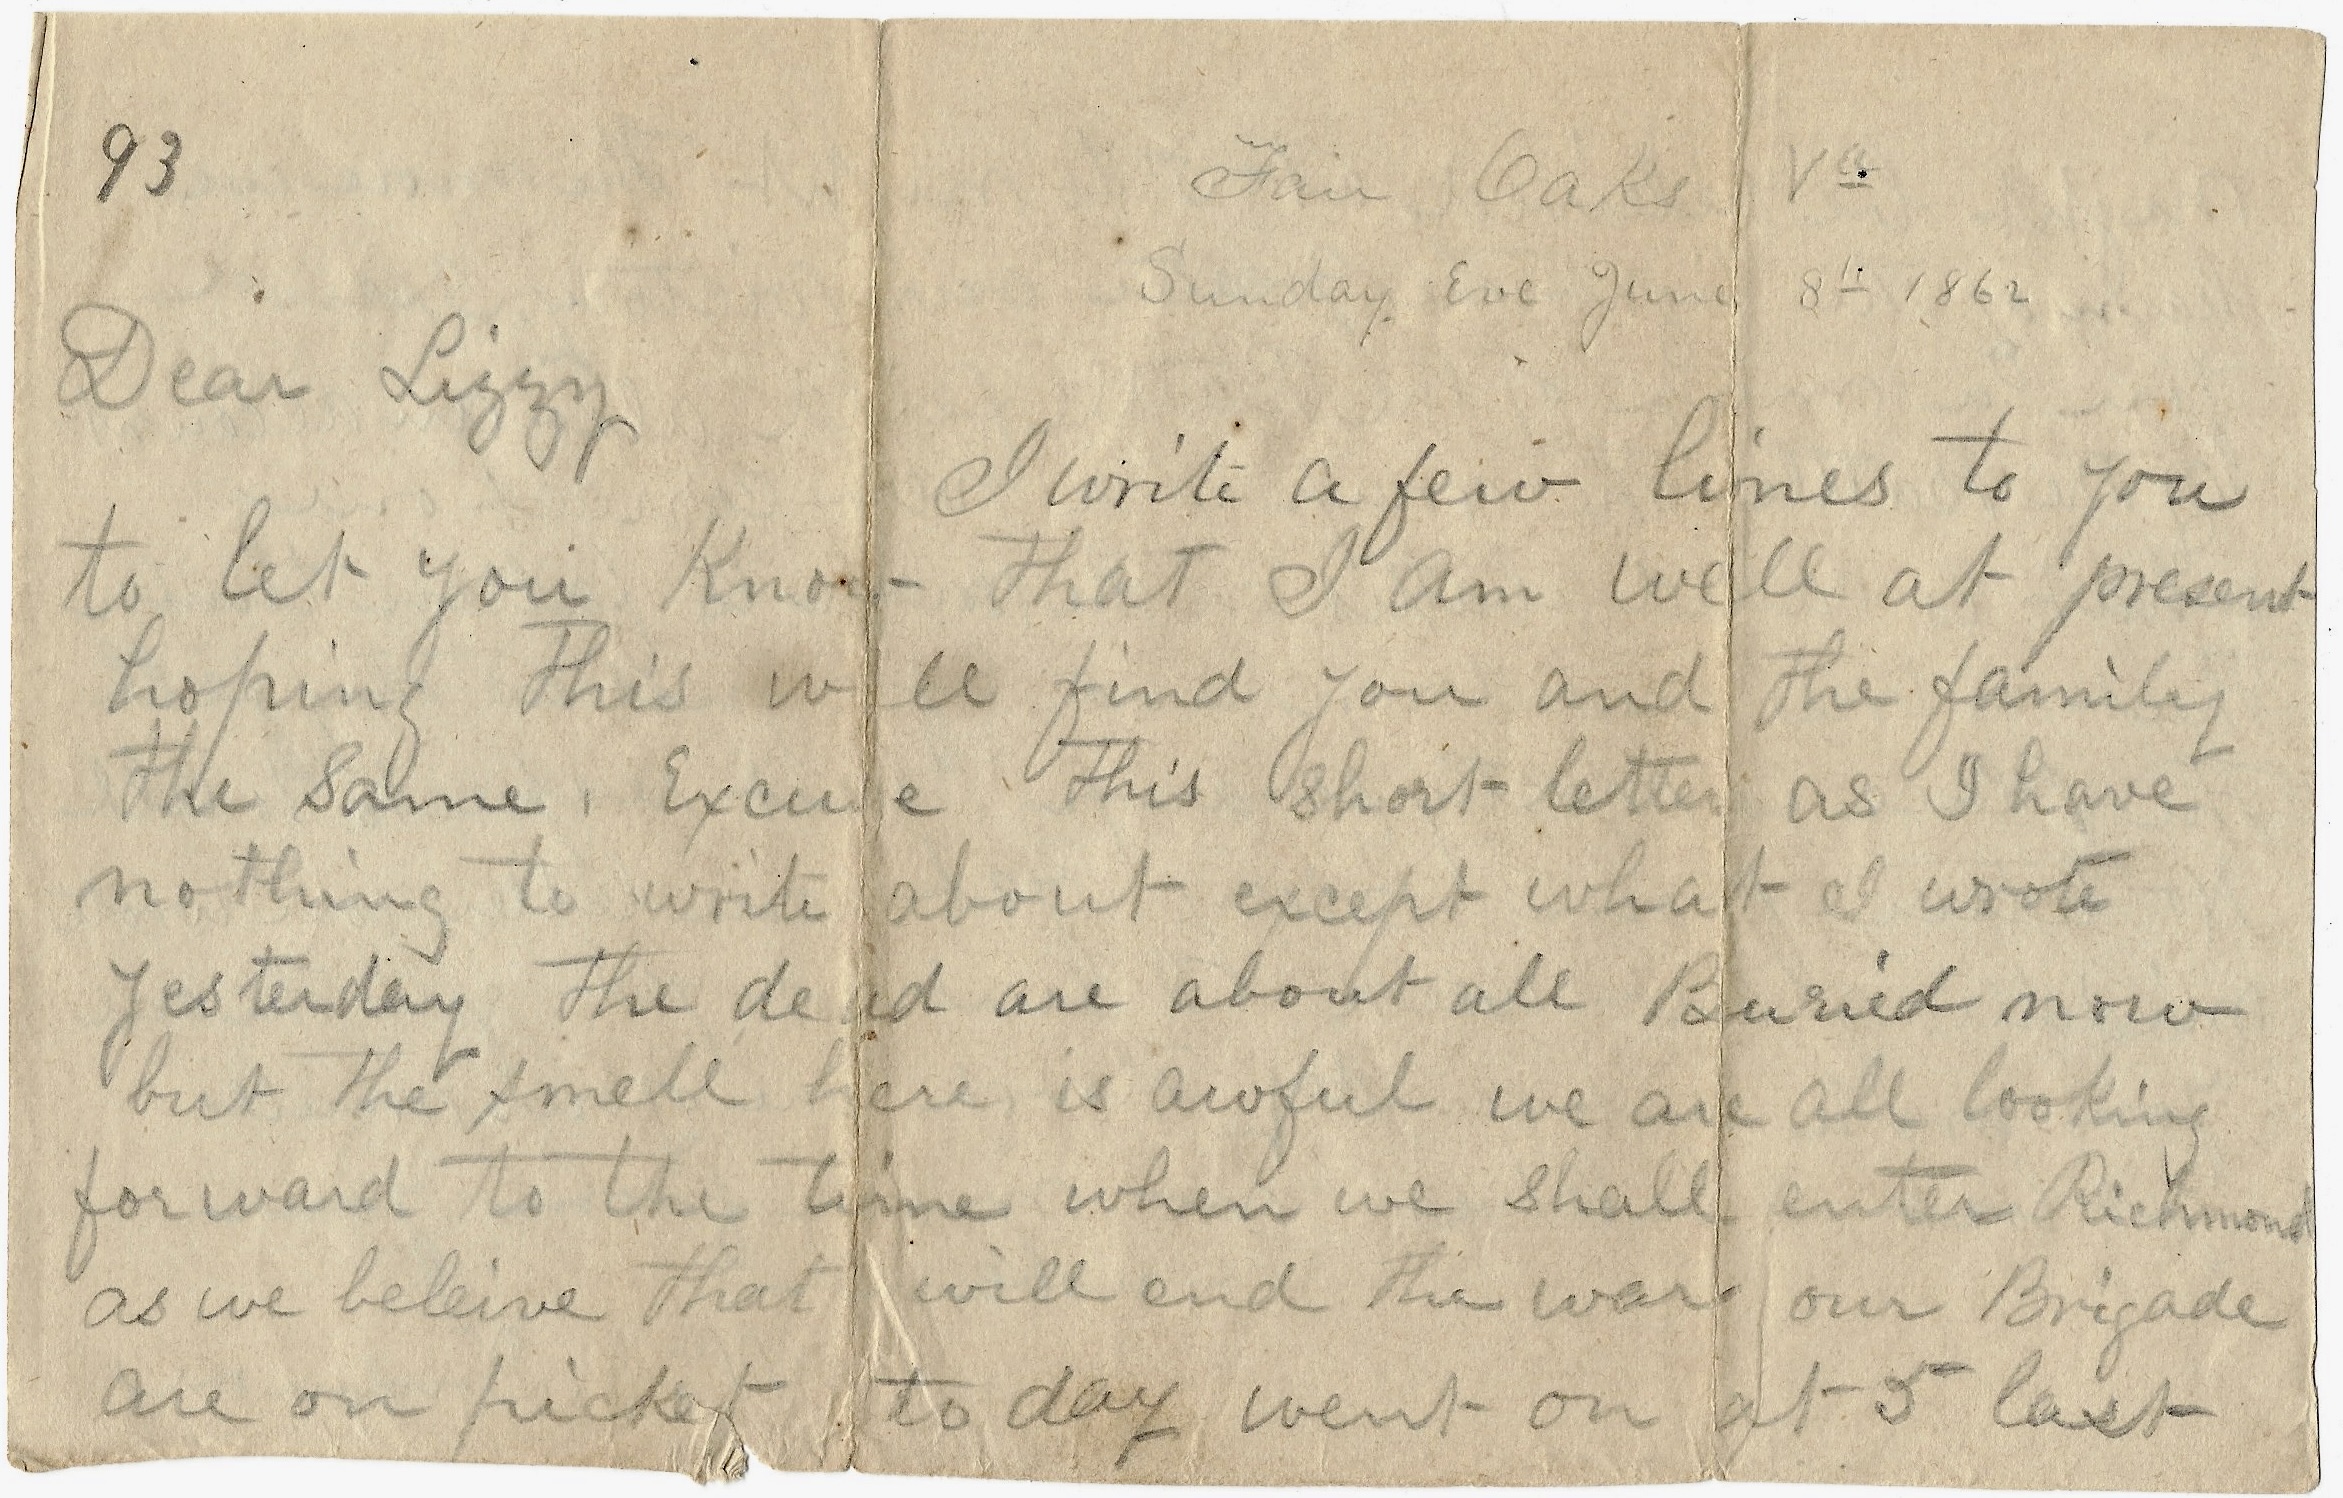 93
Fair Oaks Va
Sunday Eve June 8th 1862
Dear Lizzy
I write a few lines to you
to let you Know that I am well at present
hoping this will find you and the family
the Same. Excuse this short letter as I have
nothing to write about except what I wrote
yesterday the dead are about all Buried now
but the smell here is awful we are all looking
forward to the time when we shall enter Richmond
as we beleive that will end the war our Brigade
are on picket to day went on at 5 last